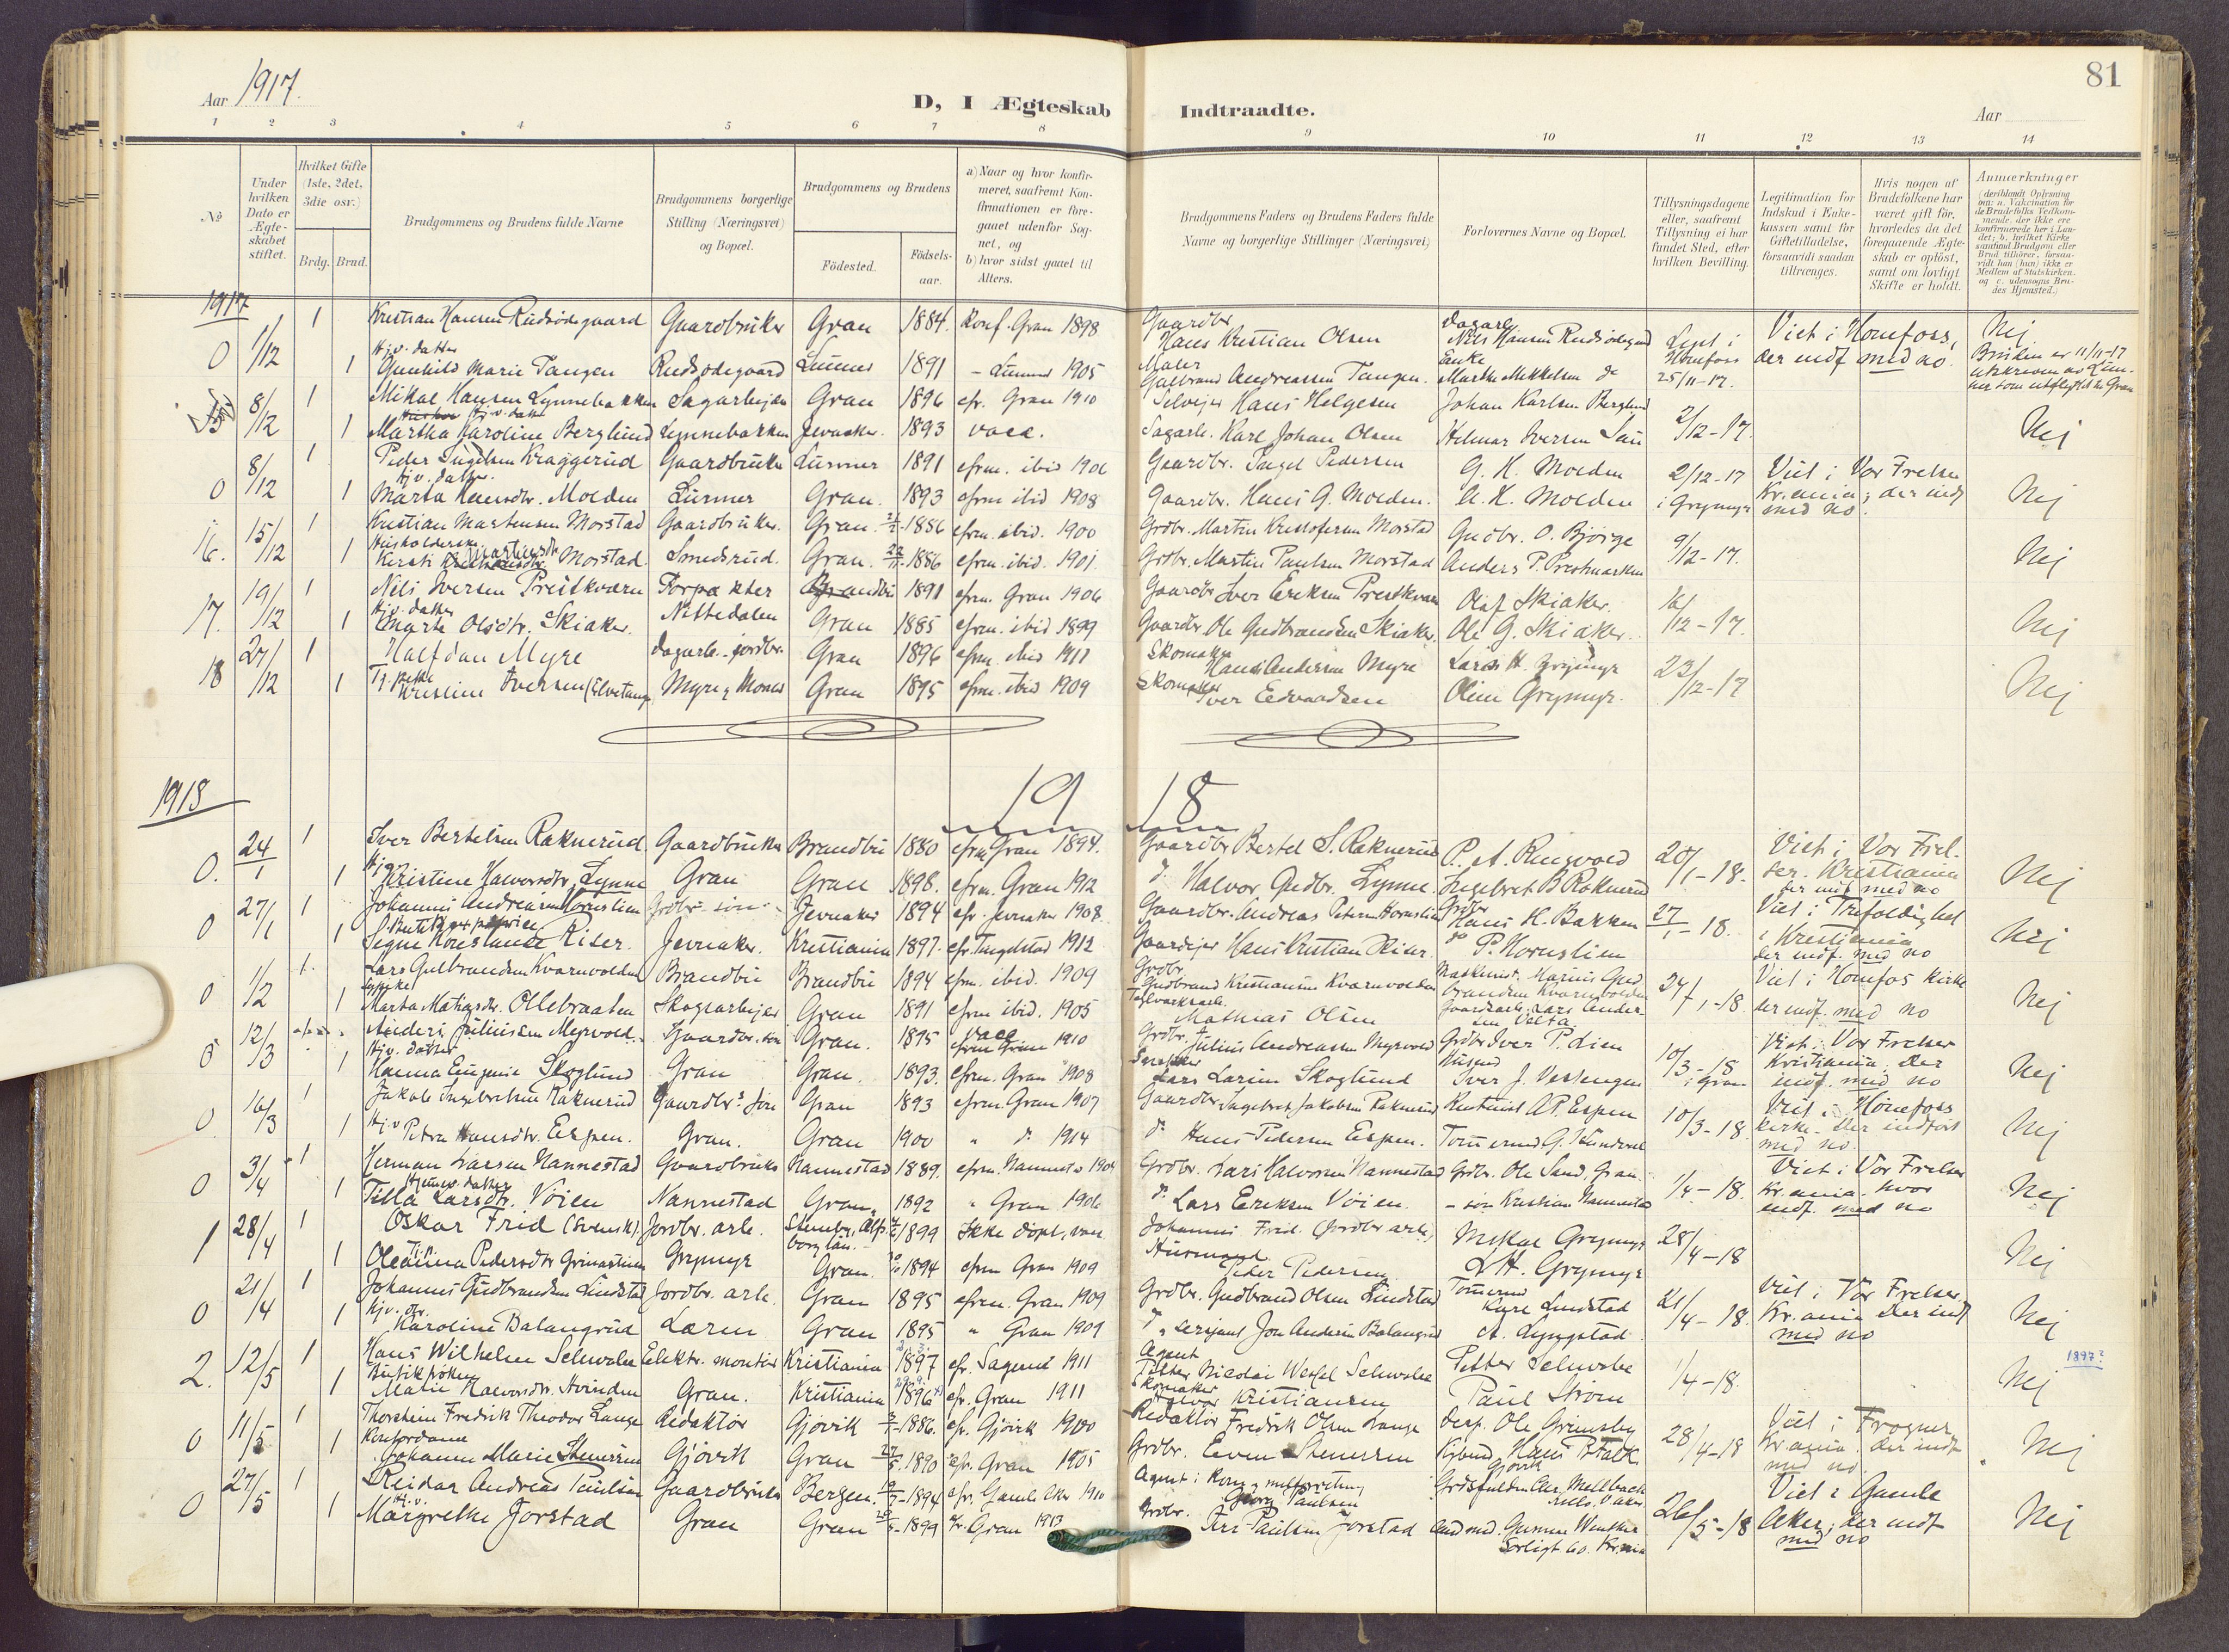 81
Aar 1917.
D, I Ægteskab Indtraadte.
Aar
1 2 3 4 5 6 7 8 9 10 11 12 13 14
No
Under hvilken Dato er Ægteskabet stiftet.
Hvilket Gifte (1ste, 2det, 3die osv.)
Brdg. Brud.
Brudgommens og Brudens fulde Navne
Brudgommens borgerlige Stilling (Næringsvei) og Bopæl.
Brudgommens og Brudens
Födested.
Födselsaar.
a) Naar og hvor konfirmeret, saafremt Konfirmationen er foregaaet udenfor Sognet, og
b) hvor sidst gaaet til Alters.
Brudgommens Faders og Brudens Faders fulde Navne og borgerlige Stillinger (Næringsvei)
Forlovernes Navne og Bopæl.
Tillysningsdagene eller, saafremt Tillysning ei har fundet Sted, efter hvilken Bevilling.
Legitimation for Indskud i Enkekassen samt for Giftetilladelse, forsaavidt saadan tiltrænges.
Hvis nogen af Brudefolkene har været gift för, hvorledes da det foregaaende Ægteskab er oplöst, samt om lovligt Skifte er holdt.
Anmærkninger
1917
0 1/12 1 Kristian Hansen Rudsödegaard Gaardbruker Gran 1884. Konf. Gran 1898 Gaardbr. Hans Kristian Olsen Dagarb. Nils Hansen Rudsödegaard Lyst i Hönefoss 25/11-17. Viet i Hönefoss, der indf med no Nej
1 Hjv. datter Gunhild Marie Tangen Rudsödegaard Lunner 1891 - Lunner 1905 Maler Gulbrand Andreassen Tangen. Enke Marthe Mikkelsen do Bruden er 11/11-17 utskreven av Lunner som utflyttet til Gran
8/12 1 Mikal Hansen Lynnebakken Sagarbejder Gran 1896 efr. Gran 1910 Selvejer Hans Helgesen Johan Karlsen Berglund 2/12-17.
1 Hjv. datter Martha Karoline Berglund Lynnebakken Jevnaker. 1893 vacc. Sagarb. Karl Johan Olsen Hilmar Iversen Nej
0 8/12 1 Peder Ingelsen Kraggerud Gaardbruker Lunner 1891 efrm. ibid 1906 Gaardbr. Ingel Pedersen G. H. Molden 2/12-17 Viet i Vor Frelser
1 Hjv. datter. Marta Hansdtr. Molden Lunner Gran. 1893 efrm ibid 1908 Gaardbr. Hans G. Molden. A. H. Molden i Grymyr Kr.ania; der indf med no. Nej
16. 15/12 1 Kristian Martensen Morstad Gaardbruker. Gran 1886 efrm. ibid. 1900 Grdbr. Martin Kristofersen Morstad Gudbr. O. Björge 9/12-17.
1 Husholderske Kirsti Martinsdtr. Morstad Smedsrud. Gran. 1886 efrm. ibid. 1901. Grdbr. Martin Paulsen Morstad Anders P. Prestmarken Nej
17. 19/12 1 Nils Iversen Prestkværn Forpakter Brandbu 1891 efrm. Gran 1906 Gaardbr Iver Eriksen Prestkværn Olaf Skiaker. 16/12-17.
1 Hjv. datter Marte Olsdtr. Skiaker. Nittedalen Gran 1885 efrm. ibid 1899 Gaardbr Ole Gudbrandsen Skiaker. Ole G. Skiaker. Nej
18 27/12 1 Halfdan Myre Dagarb. - jordbr. Gran 1896 efrm. ibid 1911 Skomaker Hans Andersen Myre Lars H. Grymyr 23/12-17
1 Kristine Iversen (Elvetang Myre, Moen Gran 1895 efrm. ibid 1909 Skomaker Iver Edvardsen Olim Grymyr. Nej
1918
19 18
0. 24/1 1 Iver Bertelsen Raknerud. Gaardbruker Brandbu 1880 efrm Gran 1894. Gaardbr Bertel S. Raknerud P. A. Ringvold 20/1-18. Viet i Vor Frelser. Kristiania der indf med no Nej
1 Hjv. Kristine Halvorsdtr. Lynne Gran Gran 1898. efrm. Gran 1912 do Halvor Gudbr. Lynne Ingebret B Raknerud
0 27/1 1 Johannes Andreassen Hornslien Grdbr. sön Jevnaker 1894 efr. Jevnaker 1908. Gaardbr. Andreas Petersen Hornslien Grdbr Hans H. Bakken 27/1-18. Viet i Trefoldighet i Kristiania der indf. med no Nej
1 Signe Konstance Riser. Jevnaker. Kristiania 1897. efr. Tingelstad 1912 Gaardejer Hans Kristian Riser. do P. Hornslien
0 1/2 1 Lars Gulbrandsen Kvarnvolden Brandbu Brandbu 1894 efrm. ibid. 1909 Grdbr. Gudbrand Kristiansen Kvarnvolden Maskinist. Marius Gudbrandsen Kvarnvolden 24/1-18 Viet i Hönefos kirke der indf. med no Nej
1 Sypike Marta Matiasdtr. Ollebraaten Skogsarbejder Gran 1891 efrm ibid. 1905 Mathias Olsen Gaardsarb. Lars Andersen Velta
0 12/3 1 Anders Juliussen Myrvold. Gaardbr. sön Gran. 1895 vacc efrm Gran 1910 Grdbr. Julius Andreassen Myrvold Grdbr Iver P. Lien 10/3-18 i Gran Viet i Vor Frelser Kristiania. der indf. med no Nej
1 Hjv. datter Hanna Eugenie Skoglund Gran Gran. 1893. efrm. Gran 1908 Lars Larsen Skoglund Husmd Iver J. Vestengen
0 16/3 1 Jakob Ingebretsen Raknerud Gaardbr. sön Gran 1893 efrm. Gran 1907 Gaardbr. Ingebret Jakobsen Raknerud A P. Espen 10/3-18. Viet i Hönefoss kirke. Der indfört med no. Nej
1 Hjv. Petra Hansdtr. Espen. Gran. Gran 1900 " do 1914 do Hans Pedersen Espen. Tömmermd G.
0 3/4 1 Herman Larsen Nannestad Gaardbruker Nannestad 1889. efrm. Nannestad 1904 Grdbr. Lars Halvorsen Nannestad Grdbr. Ole Sand, Gran. 1/4-18. Viet i Vor Frelser Kr.ania. hvor indf. med no Nej
1 Hjemmev. datter Tilla Larsdtr. Vöien Nannestad Gran. 1892 " Gran 1906 do Lars Eriksen Vöien. - sön Kristian Nannestad
1 28/4 1 Oskar Frid (svensk). Jordbr. arb. 1899 Ikke döpt, Johannes Frid. (Jordbr arb.) Mikal Grymyr 28/4-18
1 Oleanna Pedersdtr Grinastuen Grymyr Gran. 1894 efrm Gran 1909 Husmand. Peder Pedersen L H. Grymyr Nej
0 21/4 1 Johannes Gudbrandsen Lindstad Jordbr. arb. Gran 1895 efrm. Gran 1909 Grdbr. Gudbrand Olsen Lindstad Tömmermd Kare Lindstad 21/4-18. Viet i Vor Frelser Kr.ania der indf med no Nej
1 Hjv. dtr. Karoline Balangrud Laren Gran 1895 " Gran 1909 do, sersjant Jon Andersen Balangrud A. Lyngstad.
2. 12/5 1 Hans Wilhelm Schwabe Elektr. montör Kristiania 1897 efr. Sagene 1911 Agent Petter Nicolai Wessel Schwabe Petter Schwabe 1/4-18. Nej 1897?
1 Butikfröken Marie Halvorsdtr. Gran. Kristiania 1896 efr. Gran 1911 Skomaker Halvor Kristiansen Paul Ström
0 11/5 1 Thorstein Fredrik Theodor Lange Redaktör Gjövik 1886. efr. Gjövik 1900 Redaktör Fredrik Olsen Lange Disp. Ole Grimsby 28/4-18 Viet i Frogner, Kr.ania. der indf med no. Nej
1 Kontordame Johanne Marie Stenersen Gjövik Gran 27/5. 1890 efr. Gran 1905 Grdbr. Even Stenersen Kjöbmd Hans P. Falk Gjövik
0 27/5 1 Reidar Andreas Paulsen Gaardbruker Bergen. 1894 efr. Gamle Aker 1910 Agent i Georg Paulsen 26/5-18 Viet i Gamle Aker; der indf med no Nej
1 Hjv. Margrethe Jorstad Gran Gran 1899 efr. Gran 1913 Grdbr. Paulsen Jorstad